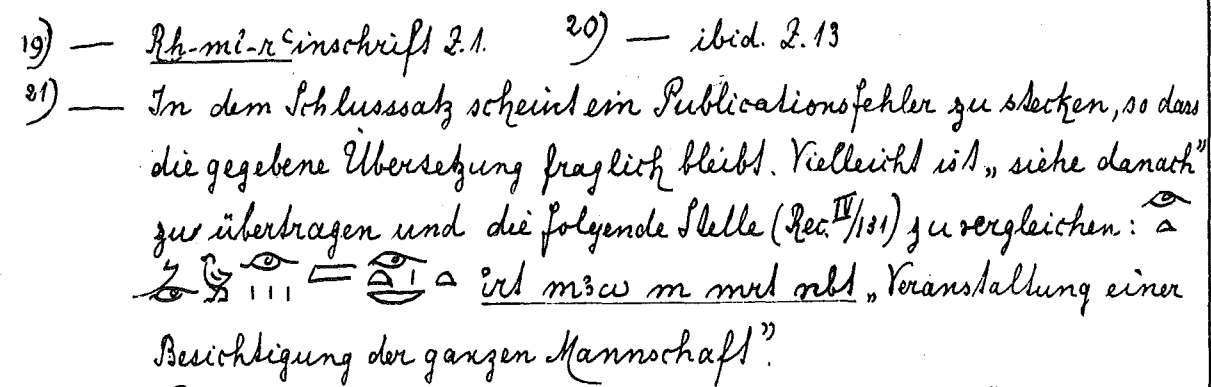 19) — Rḫ-mi-rꜥinschrift Z.1. 20) — ibid. Z.13
21) — In dem Schlusssatz scheint ein Publicationsfehler zu stecken, so dass
die gegebene Übersetzung fraglich bleibt. Vielleicht ist „siehe danach”
zu übertragen und die folgende Stelle (Rec. IV/131) zu vergleichen:
irt mꜣw m mrt nbt „Veranstaltung einer
Besichtigung der ganzen Mannschaft”.